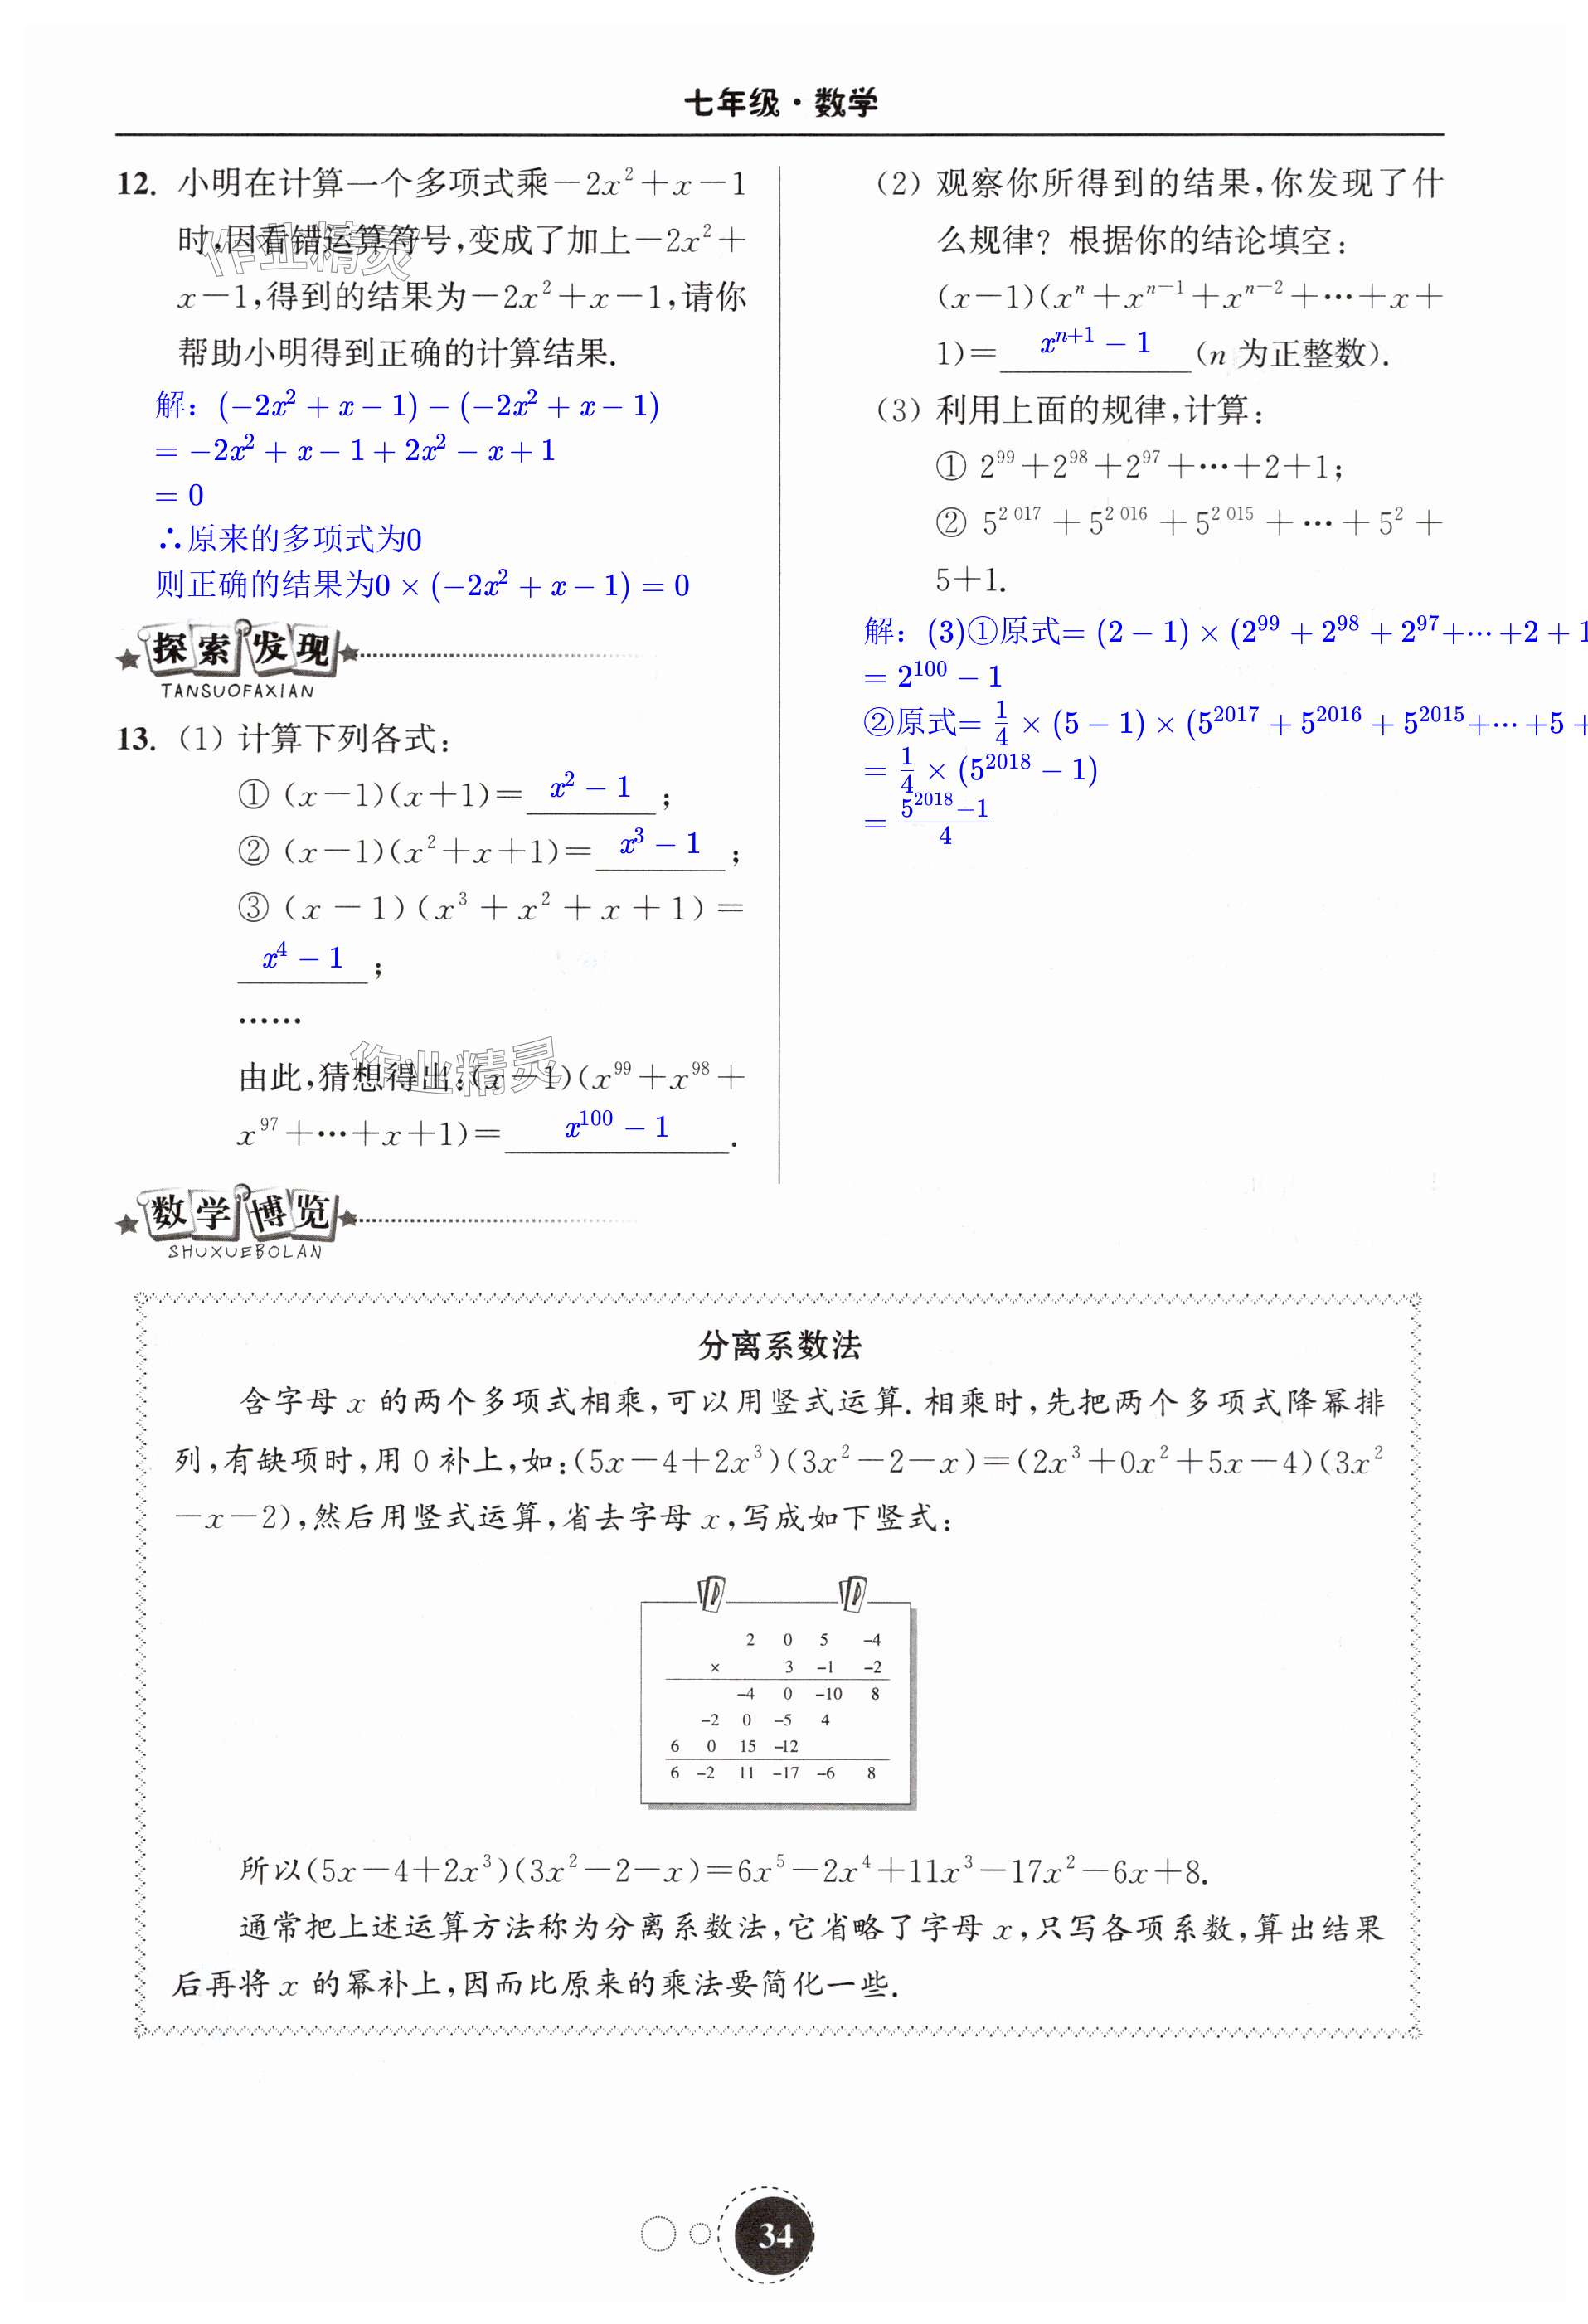 七年级·数学
12. 小明在计算一个多项式乘－2x²＋x－1
时,因看错运算符号,变成了加上－2x²＋
x－1,得到的结果为－2x²＋x－1,请你
帮助小明得到正确的计算结果.
解：(−2x² + x − 1) − (−2x² + x − 1)
= −2x² + x − 1 + 2x² − x + 1
= 0
∴原来的多项式为0
则正确的结果为0 × (−2x² + x − 1) = 0
探索发现
TANSUOFAXIAN
13. (1) 计算下列各式:
① (x－1)(x＋1)＝ x² − 1 ;
② (x－1)(x²＋x＋1)＝ x³ − 1 ;
③ (x－1)(x³＋x²＋x＋1)＝
x⁴ − 1 ;
……
由此,猜想得出:(x－1)(x⁹⁹＋x⁹⁸＋
x⁹⁷＋…＋x＋1)＝ x¹⁰⁰ − 1 .
(2) 观察你所得到的结果,你发现了什
么规律? 根据你的结论填空:
(x－1)(xⁿ＋xⁿ⁻¹＋xⁿ⁻²＋…＋x＋
1)＝ xⁿ⁺¹ − 1 (n 为正整数).
(3) 利用上面的规律,计算:
① 2⁹⁹＋2⁹⁸＋2⁹⁷＋…＋2＋1;
② 5²⁰¹⁷＋5²⁰¹⁶＋5²⁰¹⁵＋…＋5²＋
5＋1.
解：(3)①原式= (2 − 1) × (2⁹⁹ + 2⁹⁸ + 2⁹⁷+⋯ +2 + 1
= 2¹⁰⁰ − 1
②原式= 1/4 × (5 − 1) × (5²⁰¹⁷ + 5²⁰¹⁶ + 5²⁰¹⁵+⋯ +5 +
= 1/4 × (5²⁰¹⁸ − 1)
= (5²⁰¹⁸−1)/4
作业精灵
作业精灵
数学博览
SHUXUEBOLAN
分离系数法
含字母 x 的两个多项式相乘,可以用竖式运算. 相乘时,先把两个多项式降幂排
列,有缺项时,用 0 补上,如:(5x－4＋2x³)(3x²－2－x)＝(2x³＋0x²＋5x－4)(3x²
－x－2),然后用竖式运算,省去字母 x,写成如下竖式:
2 0 5 −4
× 3 −1 −2
−4 0 −10 8
−2 0 −5 4
6 0 15 −12
6 −2 11 −17 −6 8
所以(5x－4＋2x³)(3x²－2－x)＝6x⁵－2x⁴＋11x³－17x²－6x＋8.
通常把上述运算方法称为分离系数法,它省略了字母 x,只写各项系数,算出结果
后再将 x 的幂补上,因而比原来的乘法要简化一些.
34